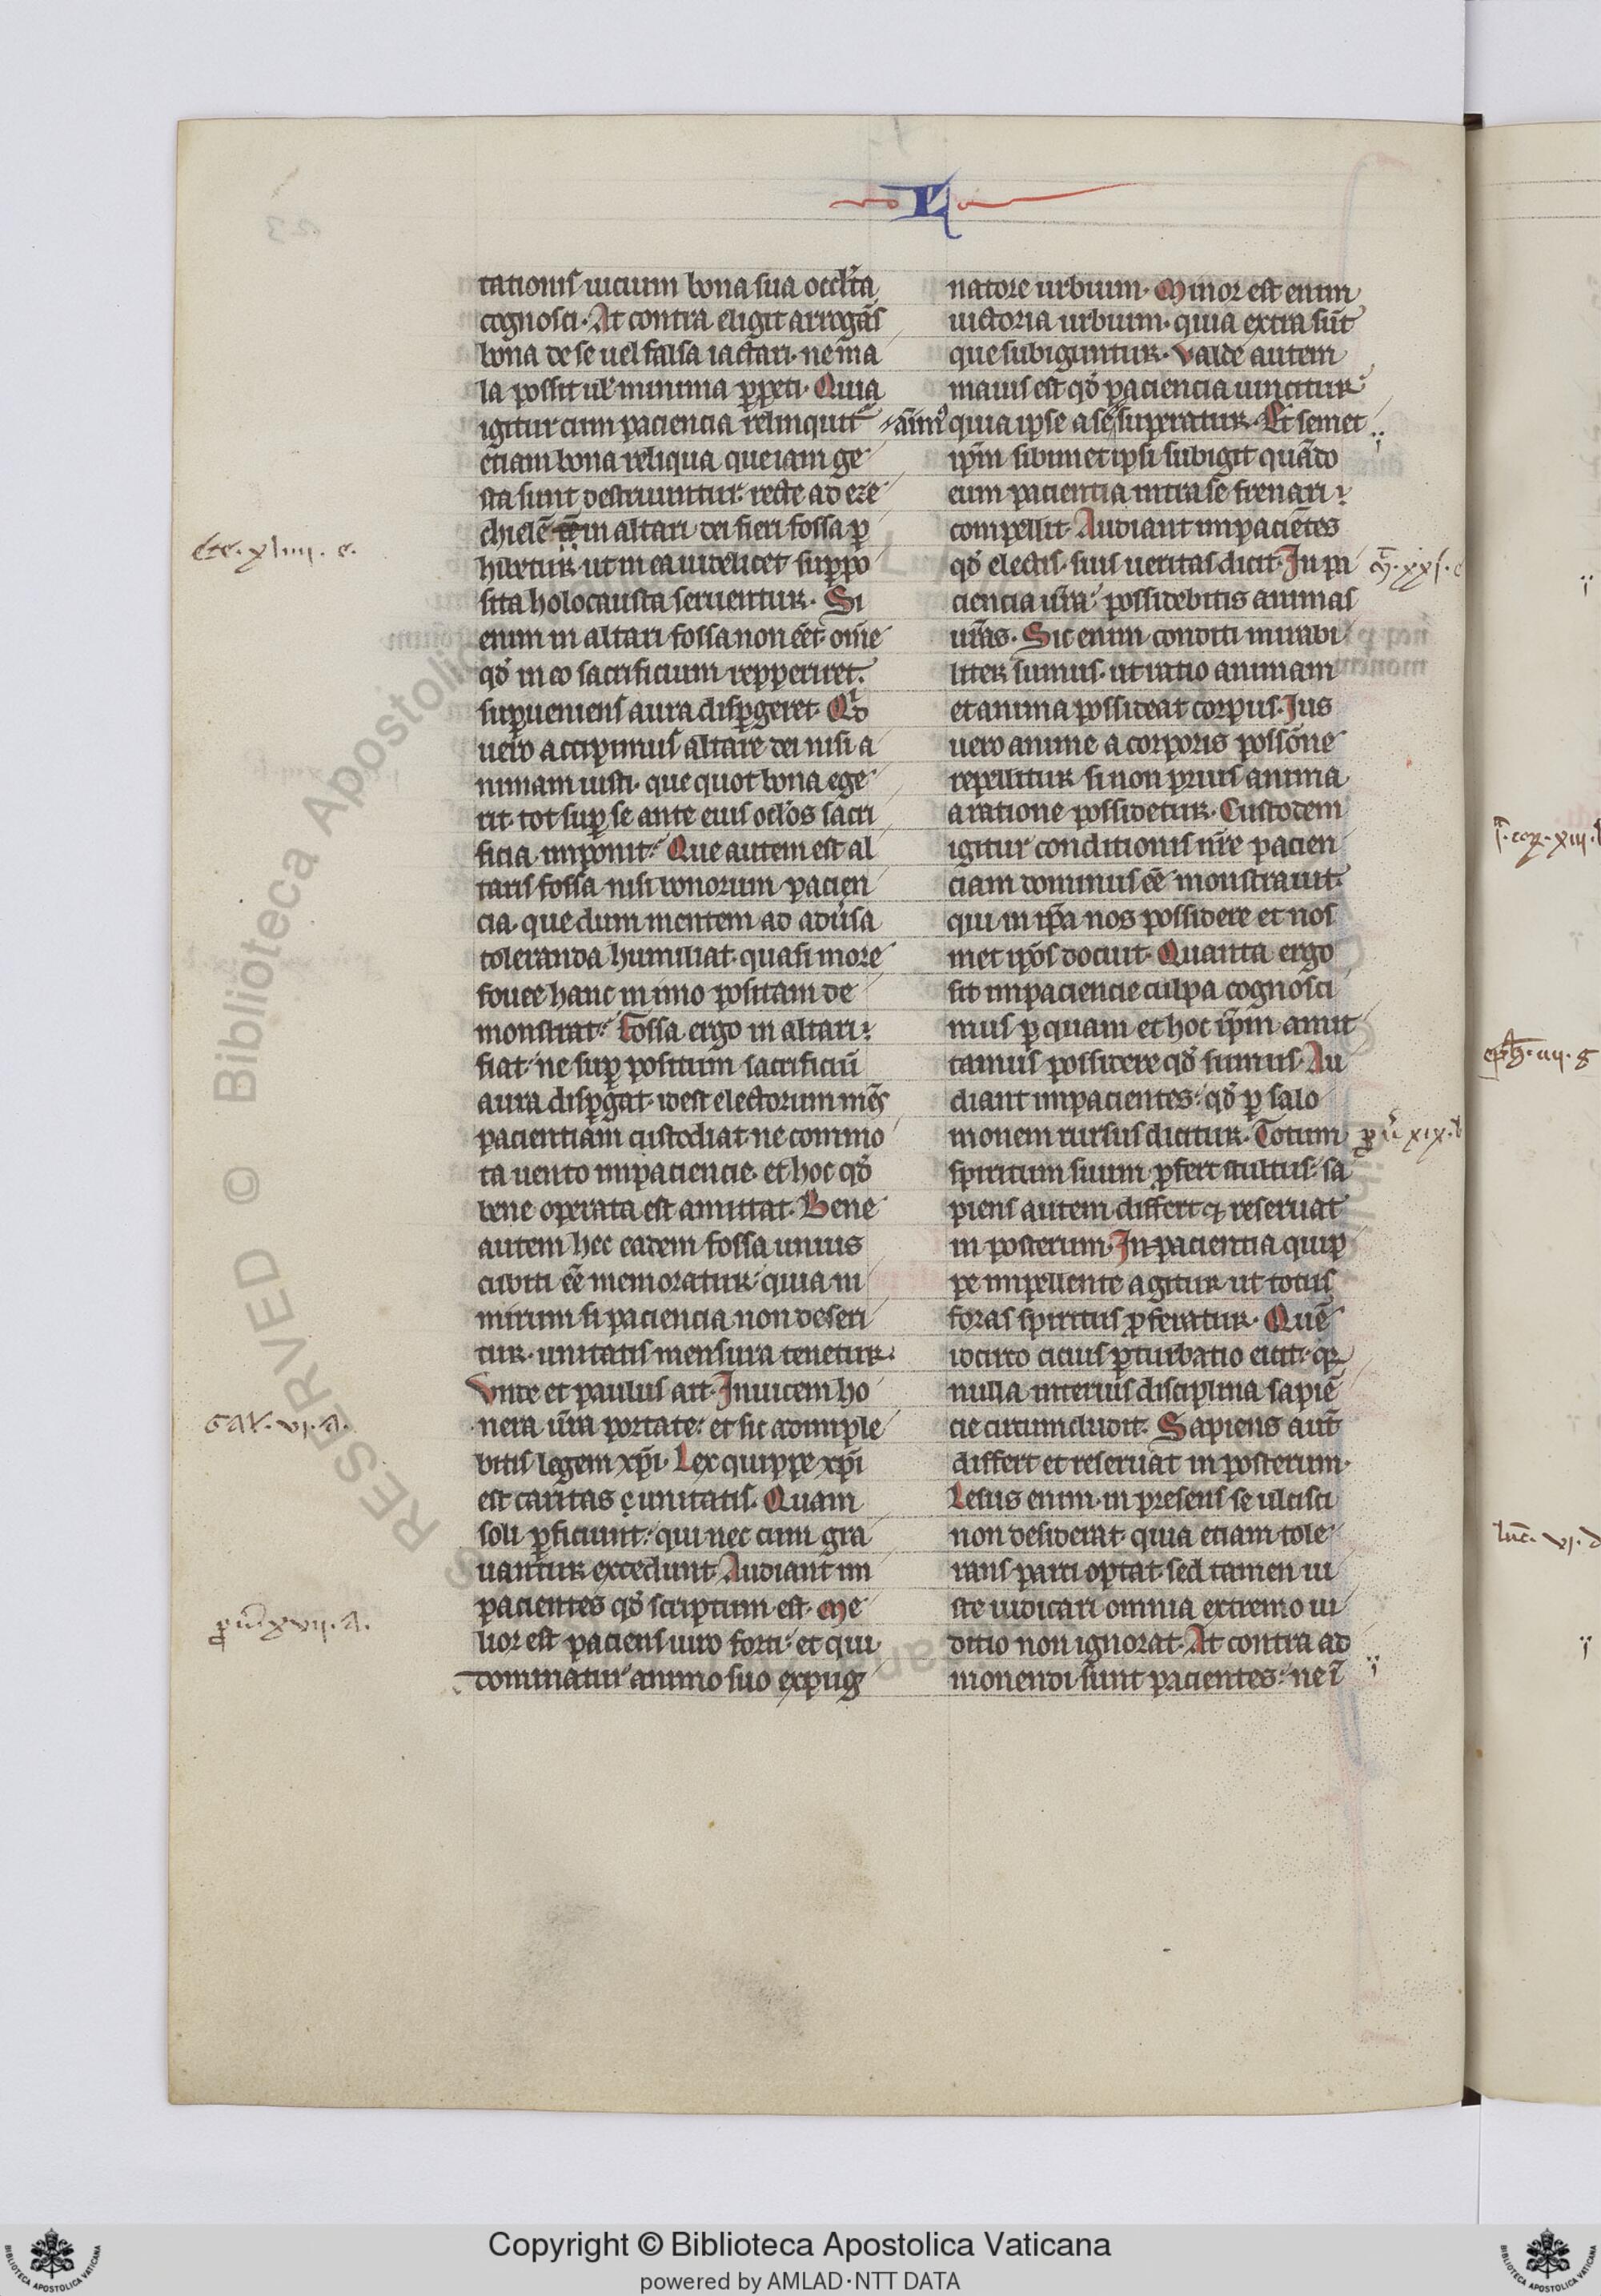 tationis uicium bona sua occl̄ta
cognosci. At contra eligit arrogās
bona de se uel falsa iactari. ne ma
la possit ul̄ minima ꝑpeti. Quia
igitur cum paciencia relinquit᷑
etiam bona reliqua que iam ge
sta sunt destruuntur. recte ad eze
chielē in altari dei fieri fossa p̱
hibetur. ut in ea uidelicet suppo
sita holocausta seruentur. Si
enim in altari fossa non eēt. om̄e
qd̓ in eo sacrificium repperiret.
suꝑueniens aura disꝑgeret. Qi̓d
uero accipimus altare dei nisi a
nimam iusti. que quot bona ege
rit. tot suꝑ se ante eius oc̄los sacri
ficia imponit. Que autem est al
taris fossa nisi bonorum pacien
cia. que dum mentem ad adūsa
toleranda humiliat. quasi more
fouee hanc in imo positam de
monstrat. Fossa ergo in altari
fiat. ne suꝑ positum sacrificiū
aura disꝑgat. idest electorum mēs
pacientiam custodiat. ne commo
ta uento impaciencie. et hoc qd̓
bene operata est amittat. Bene
autem hec eadem fossa unius
cubiti eē memoratur. quia ni
mirum si paciencia non deseri
tur. unitatis mensura tenetur.
Vnde et paulus ait. Inuicem ho
nera ūra portate. et sic adimple
bitis legem xp̄i. Lex quippe xp̄i
est caritas ⁊ unitatis. Quam
soli ꝑficiunt. qui nec cum gra
uantur excedunt. Audiant im
pacientes qd̓ scriptum est. Me
lior est paciens uiro forti. et qui
dominatur animo suo expug
natore urbium. Minor est enim
uictoria urbium. quia extra sūt
que subiguntur. Valde autem
maius est qd̓ paciencia uincitur
aīm̓ quia ipse a se superatur. Et semet
ip̄m sibimet ipsi subigit quādo
eum pacientia intra se frenari
compellit. Audiant impaciētes
qd̓ electis suis ueritas dicit. In pa
ciencia ūra possidebitis animas
ūras. Sic enim conditi mirabi
liter sumus. ut ratio animam
et anima possideat corpus. Ius
uero anime a corporis possōne
repellitur si non prius anima
a ratione possidetur. Custodem
igitur conditionis nr̄e pacien
ciam dominus eē monstrauit.
qui in ip̄a nos possidere et nos
met ip̄os docuit. Quanta ergo
sit impaciencie culpa cognosci
mus ꝑ quam et hoc ip̄m amit
tamus possidere qd̓ sumus. Au
diant impacientes. qd̓ ꝑ salo
monem rursus dicitur. Totum
spiritum suum ꝓfert stultus. sa
piens autem differt ⁊ reseruat
in posterum. In pacientia quip
pe impellente agitur ut totus
foras spiritus ꝓferatur. Quē
idcirco citius ꝑturbatio eicit. qꝛ
nulla interius disciplina sapiē
cie circumcludit. Sapiens aūt
differt et reseruat in posterum.
Lesus enim in presens se ulcisci
non desiderat. quia etiam tole
rans parci optat. sed tamen iu
ste iudicari omnia extremo iu
ditio non ignorat. At contra ad
monendi sunt pacientes. ne ī
Eze. xliiii. e.
Gal. vi. a.
ꝓū. xvii. a.
ꝓū. xix. b
ī. cor. xiii.
eph̄. iiii. g
luc̄. vi. d
Copyright © Biblioteca Apostolica Vaticana
powered by AMLAD·NTT DATA